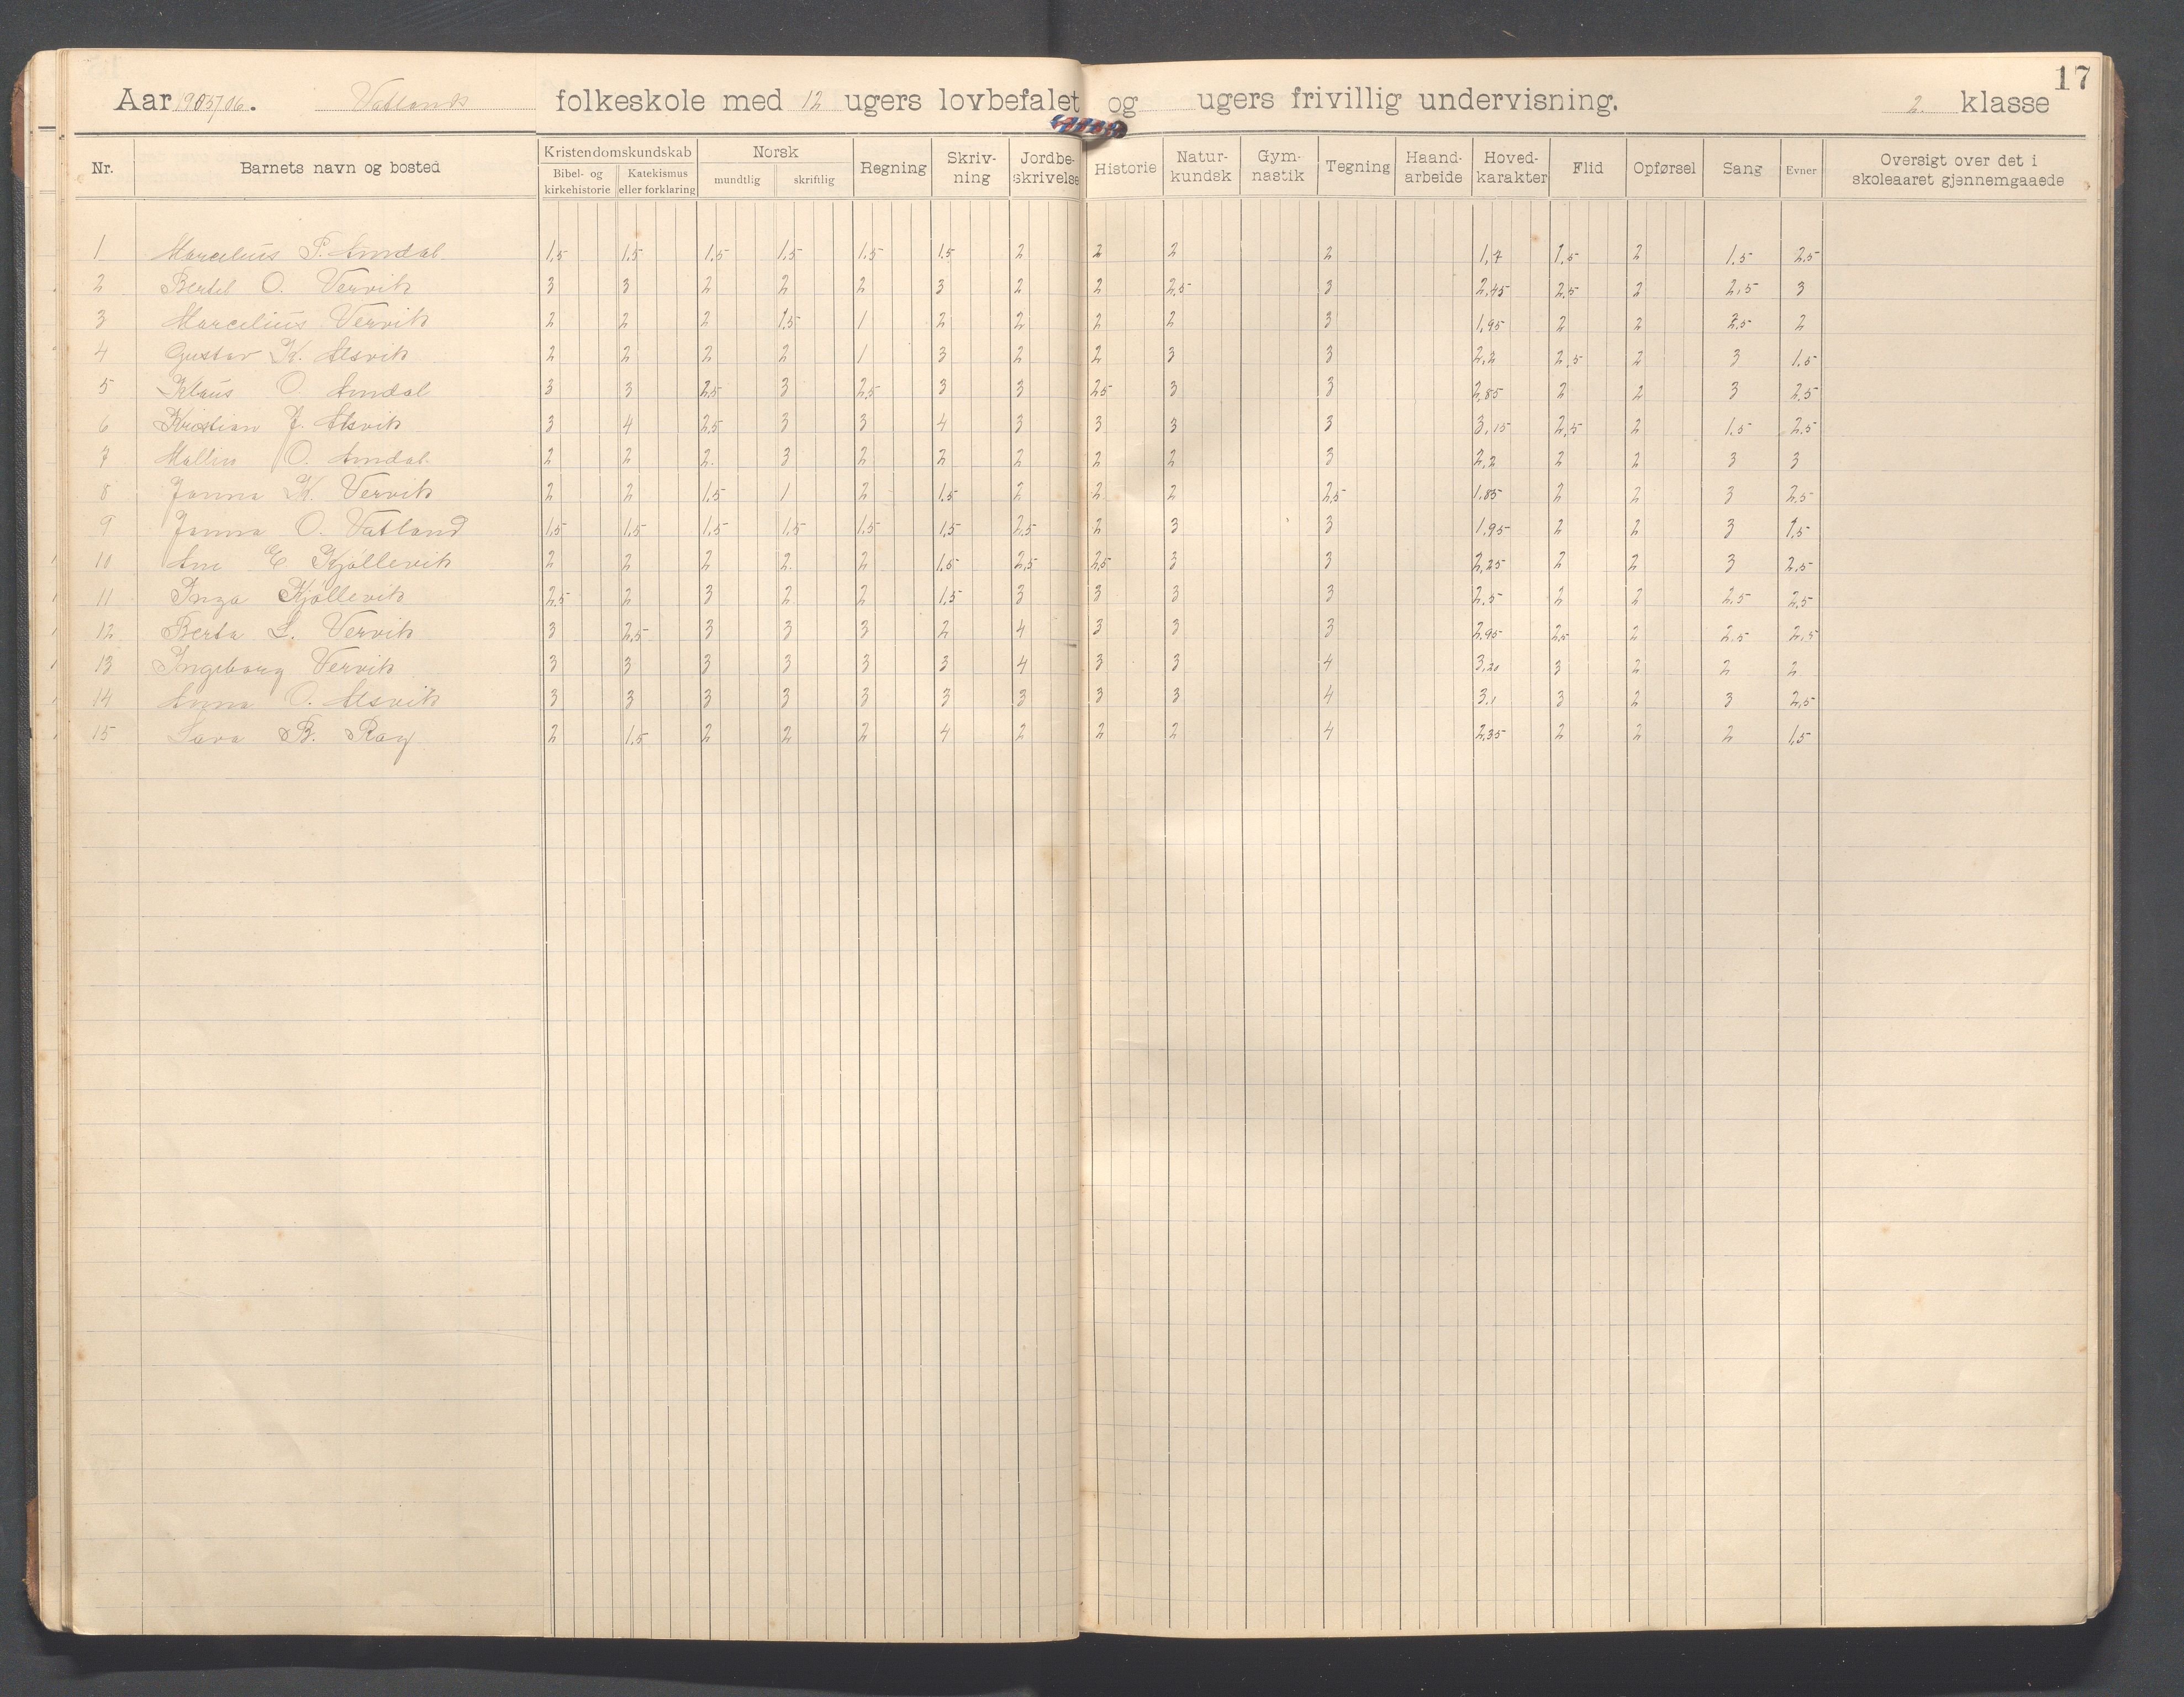 17
Aar 1905/06. Vatlands folkeskole med 12 ugers lovbefalet og ugers frivillig undervisning. 2. klasse
Nr. Barnets navn og bosted Kristendomskundskab Norsk Regning Skriv-ning Jordbe-skrivelse Historie Natur-kundsk Gym-nastik Tegning Haand-arbeide Hoved-karakter Flid Opførsel Sang Evner Oversigt over det i skoleaaret gjennemgaaede
Bibel- og kirkehistorie Katekismus eller forklaring mundtlig skriftlig
1 Marcelius P. Amdal 1,5 1,5 1,5 1,5 1,5 1,5 2 2 2 2 1,7 1,5 2 1,5 2,5
2 Bertel O. Vervik 3 3 2 2 2 3 2 2 2,5 3 2,45 2,5 2 2,5 3
3 Marcelius Vervik 2 2 2 1,5 1 2 2 2 2 3 1,95 2 2 2,5 2
4 Gustav K. Alsvik 2 2 2 2 1 3 2 2 3 3 2,2 2,5 2 3 1,5
5 Klaus O. Amdal 3 3 2,5 3 2,5 3 3 2,5 3 3 2,85 2 2 3 2,5
6 Kristian J. Alsvik 3 4 2,5 3 3 4 3 3 3 3 3,15 2,5 2 1,5 2,5
7 Mallin O. Amdal 2 2 2. 3 2 2 2 2 2 3 2,2 2 2 3 3
8 Janna K. Vervik 2 2 1,5 1 2 1,5 2 2 2 2,5 1,85 2 2 3 2,5
9 Janna O. Vatland 1,5 1,5 1,5 1,5 1,5 1,5 2,5 2 3 3 1,95 2 2 3 1,5
10 Ane E Kjøllevik 2 2 2 2. 2 1,5 2,5 2,5 3 3 2,25 2 2 3 2,5
11 Inga Kjøllevik 2,5 2 3 2 2 1,5 3 3 3 3 2,5 2 2 2,5 2,5
12 Berta L. Vervik 3 2,5 3 3 3 2 4 3 3 3 2,95 2,5 2 2,5 2,5
13 Ingeborg Vervik 3 3 3 3 3 3 4 3 3 4 3,20 3 2 2 2
14 Anna O. Alsvik 3 3 3 3 3 3 3 3 3 4 3,1 3 2 3 2,5
15 Sara B. Røg 2 1,5 2 2 2 4 2 2 2 4 2,35 2 2 2 1,5